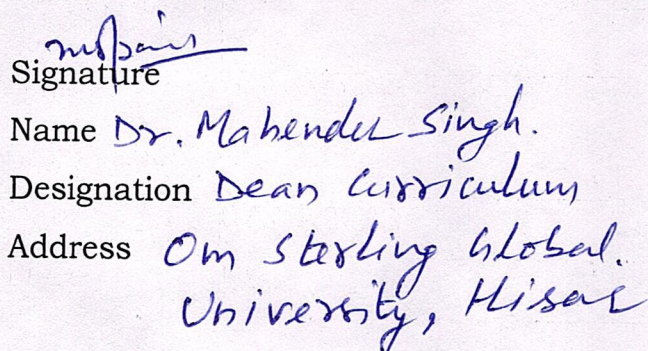 Signature
Name Dr. Mahender Singh.
Designation Dean Curriculum
Address Om Sterling Global.
University, Hisar